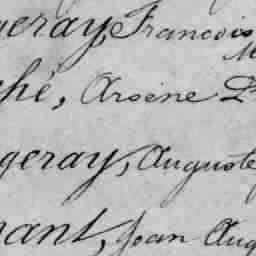 geray, Francois
ché, Arsène
geray, Auguste
nant, Jean Aug